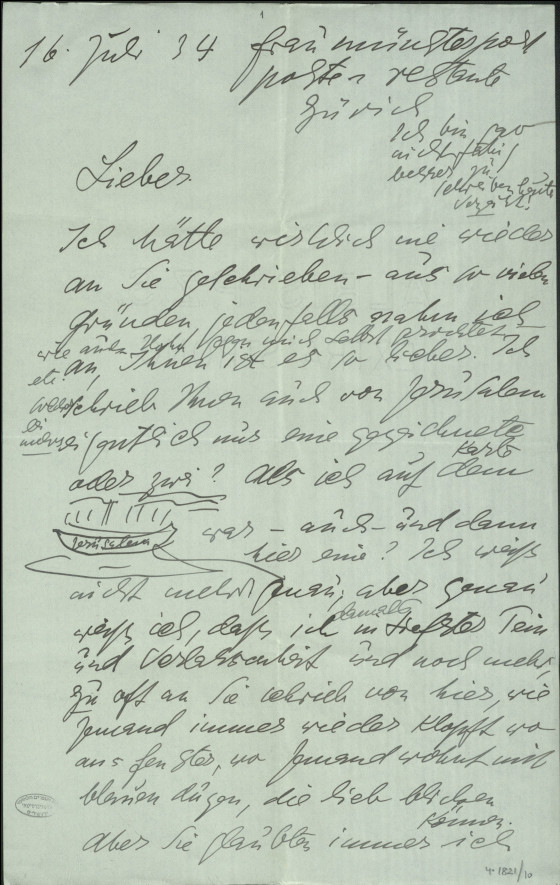 1
16. Juli 34 Fraumünsterpost
poste restante
Zürich
Ich bin gar
nicht fähig
besser zu
schreiben heute
Verzeiht!
Lieber.
Ich hätte wirklich nie wieder
an Sie geschrieben – aus so vielen
Gründen jedenfalls nahm ich
gegen mich selbst gerichtet
an, Ihnen ist es so lieber. Ich
schrieb Ihnen auch von Jerusalem
eigentlich nur eine gezeichnete
Karte
oder zwei? Als ich auf dem
Jerusalem
war – auch – und dann
hier eine? Ich weiß
nicht mehr genau, aber genau
damals
weiß ich, daß ich in tiefster Pein
und Verlassenheit und noch mehr,
zu oft an Sie schrieb von hier, wie
Jemand immer wieder klopft wo
ans Fenster, wo Jemand wohnt mit
blauen Augen, die lieb blicken
können.
Aber Sie glaubten immer ich
4-1821/10